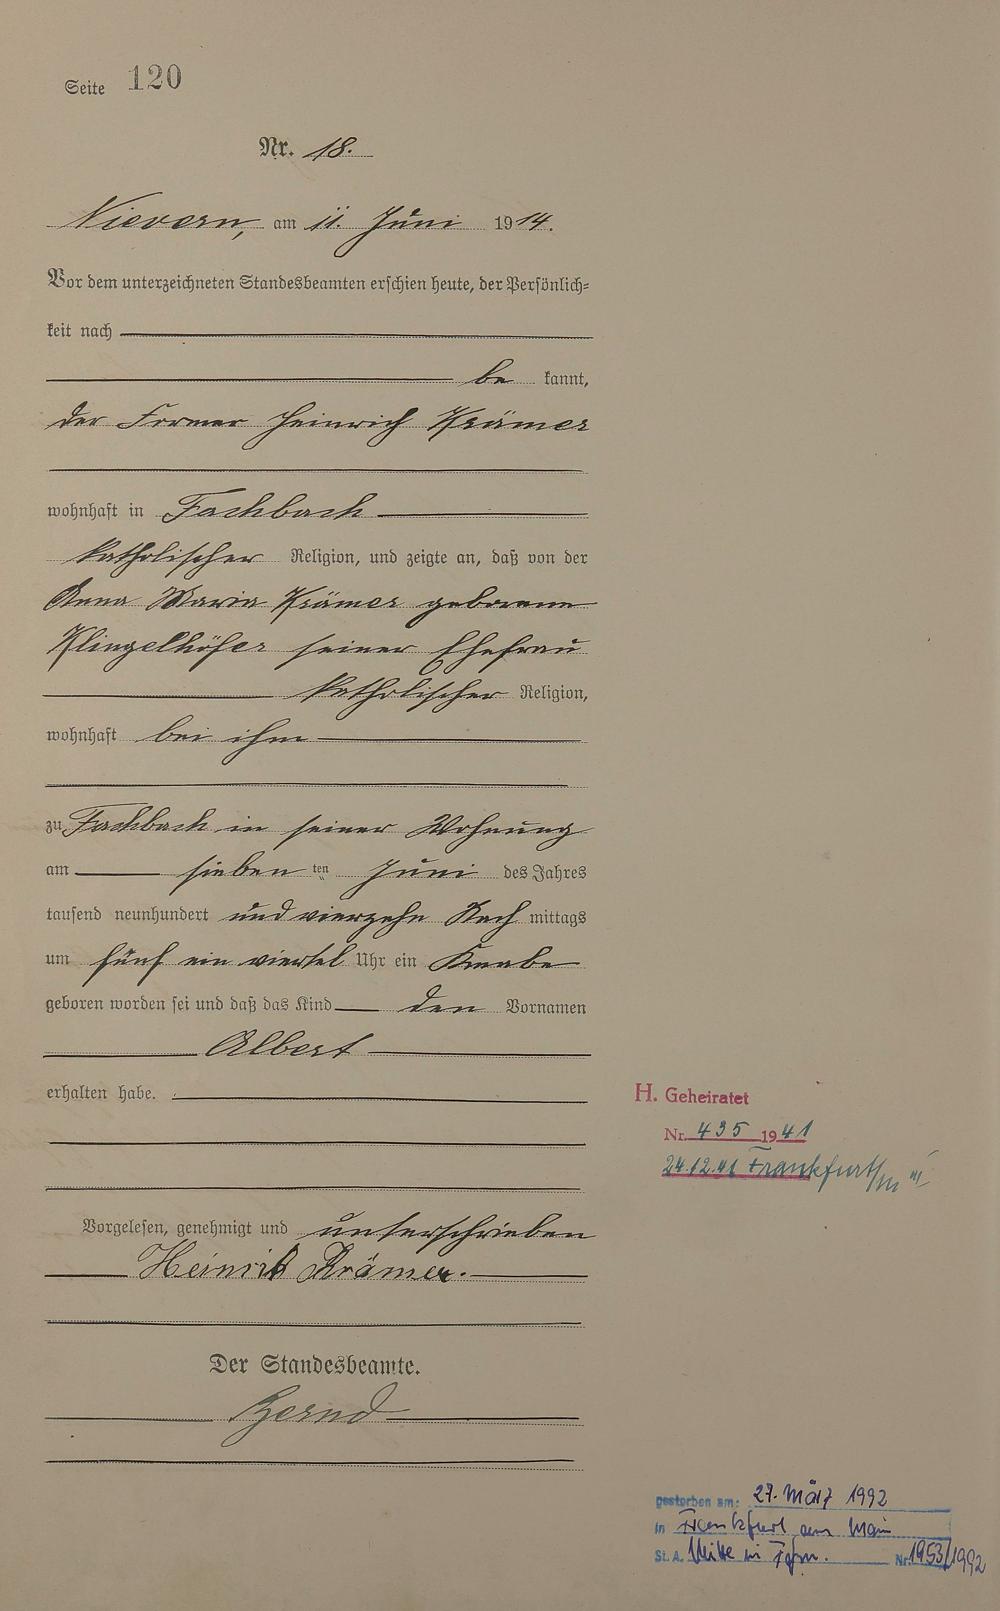 Seite 120
Nr. 18.
Nievern, am 11. Juni 1914.
Vor dem unterzeichneten Standesbeamten erschien heute, der Persönlich=
keit nach
be kannt,
der Former Heinrich Krämer
wohnhaft in Fachbach
katholischer Religion, und zeigte an, daß von der
Anna Maria Krämer geborene
Klingelhöfer seiner Ehefrau
katholischer Religion,
wohnhaft bei ihm
zu Fachbach in seiner Wohnung
am sieben ten Juni des Jahres
tausend neunhundert und vierzehn Nach mittags
um fünf ein viertel Uhr ein Knabe
geboren worden sei und daß das Kind den Vornamen
Albert
erhalten habe.
H. Geheiratet
Nr. 435 1941
24.12.41 Frankfurt/M III
Vorgelesen, genehmigt und unterschrieben
Heinrich Krämer.
Der Standesbeamte.
gestorben am: 27. März 1992
in Frankfurt am Main
St. A. Mitte in Ffm. Nr. 1953/1992